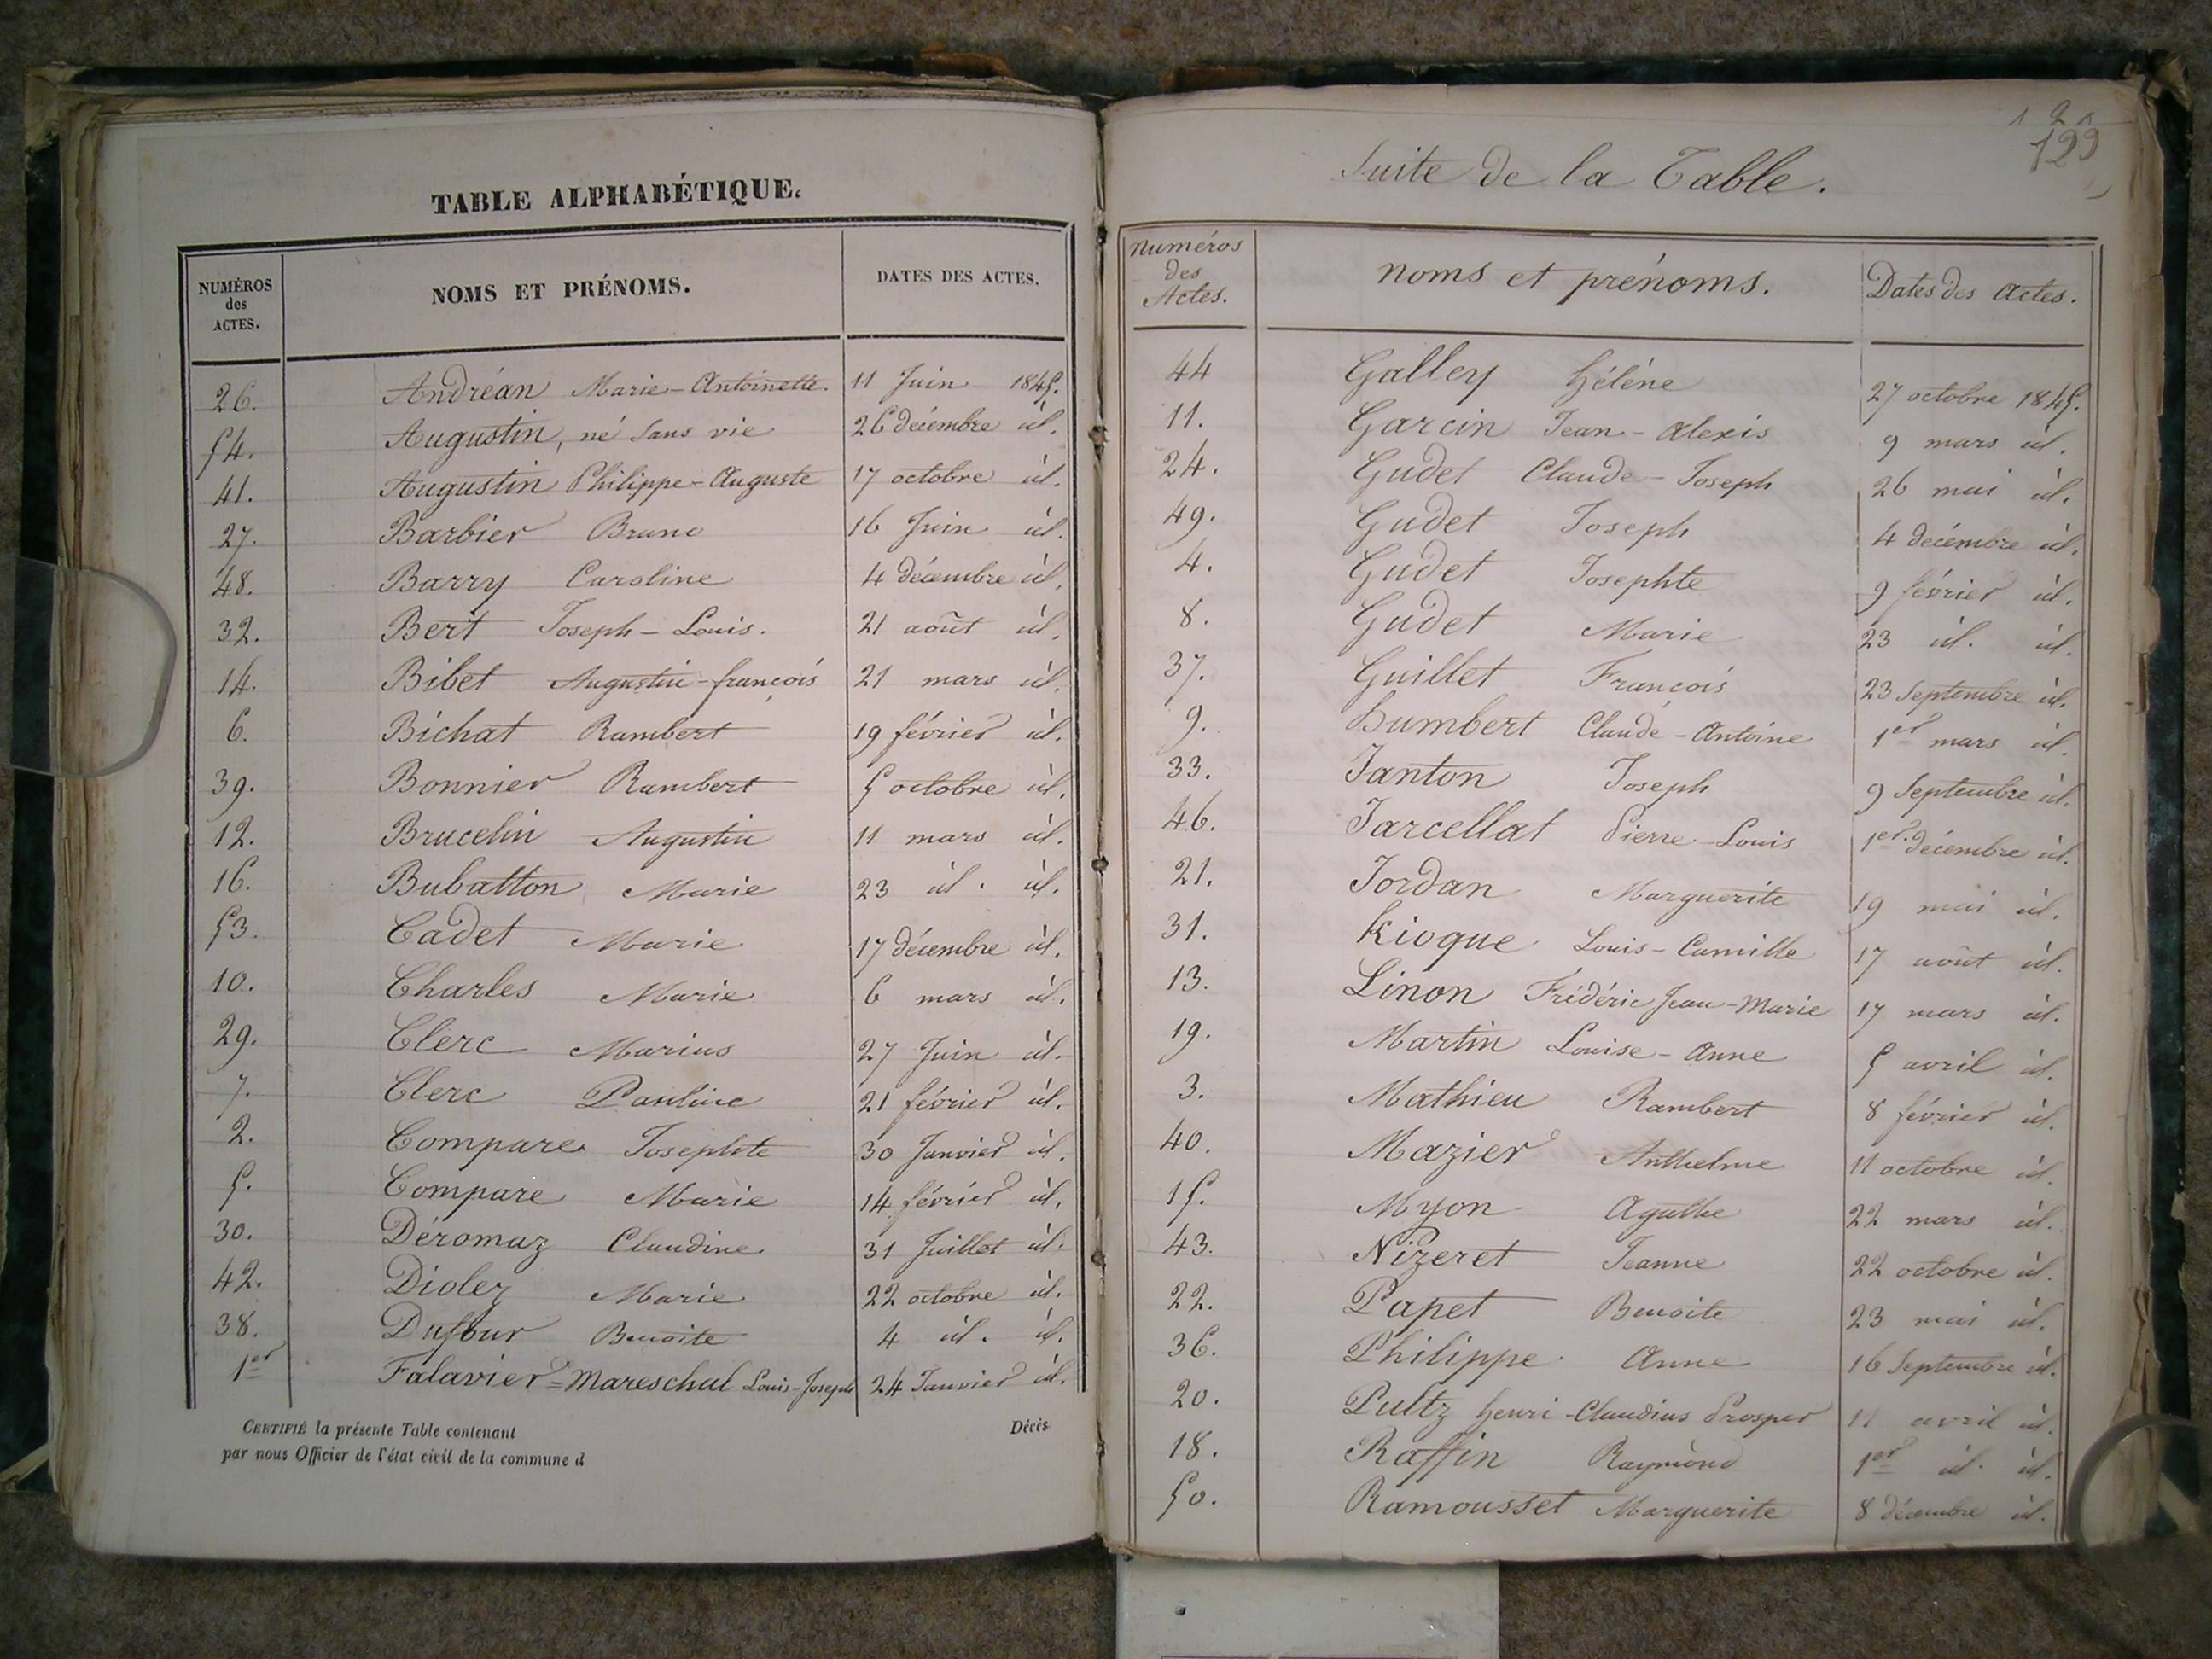 TABLE ALPHABÉTIQUE.
NUMÉROS des ACTES. NOMS ET PRÉNOMS. DATES DES ACTES.
26. Andréan Marie-Antoinette. 11 Juin 1845.
54. Augustin, né sans vie 26 décembre id.
41. Augustin Philippe-Auguste 17 octobre id.
27. Barbier Bruno 16 Juin id.
48. Barry Caroline 4 décembre id.
32. Bert Joseph-Louis. 21 août id.
14. Bibet Augustin-françois 21 mars id.
6. Bichat Rambert 19 février id.
39. Bonnier Rambert 5 octobre id.
12. Brucelin Augustin 11 mars id.
16. Bubatton Marie 23 id. id.
53. Cadet Marie 17 décembre id.
10. Charles Marie 6 mars id.
29. Clerc Marius 27 Juin id.
7. Clerc Pauline 21 février id.
2. Compare Josephte 30 Janvier id.
5. Compare Marie 14 février id.
30. Déromaz Claudine 31 Juillet id.
42. Diolez Marie 22 octobre id.
38. Dufour Benoite 4 id. id.
1er Falavier=Mareschal Louis-Joseph 24 Janvier id.
CERTIFIÉ la présente Table contenant Décès
par nous Officier de l'état civil de la commune d
129
Suite de la Table.
Numéros des Actes. noms et prénoms. Dates des actes.
44 Galley hélène 27 octobre 1845.
11. Garcin Jean-alexis 9 mars id.
24. Gudet Claude-Joseph 26 mai id.
49. Gudet Joseph 4 décembre id.
4. Gudet Josephte 9 février id.
8. Gudet Marie 23 id. id.
37. Guillet François 23 Septembre id.
9. humbert Claude-Antoine 1er mars id.
33. Janton Joseph 9 Septembre id.
46. Jarcellat Pierre-Louis 1er décembre id.
21. Jordan Marguerite 19 mai id.
31. Kioque Louis-Camille 17 août id.
13. Linon Frédéric Jean-Marie 17 mars id.
19. Martin Louise-anne 5 avril id.
3. Mathieu Rambert 8 février id.
40. Mazier Anthelme 11 octobre id.
15. Myon Agathe 22 mars id.
43. Nizeret Jeanne 22 octobre id.
22. Papet Benoite 23 mai id.
36. Philippe Anne 16 Septembre id.
20. Pultz henri-Claudius Prosper 11 avril id.
18. Raffin Raymond 1er id. id.
50. Ramousset Marguerite 8 décembre id.